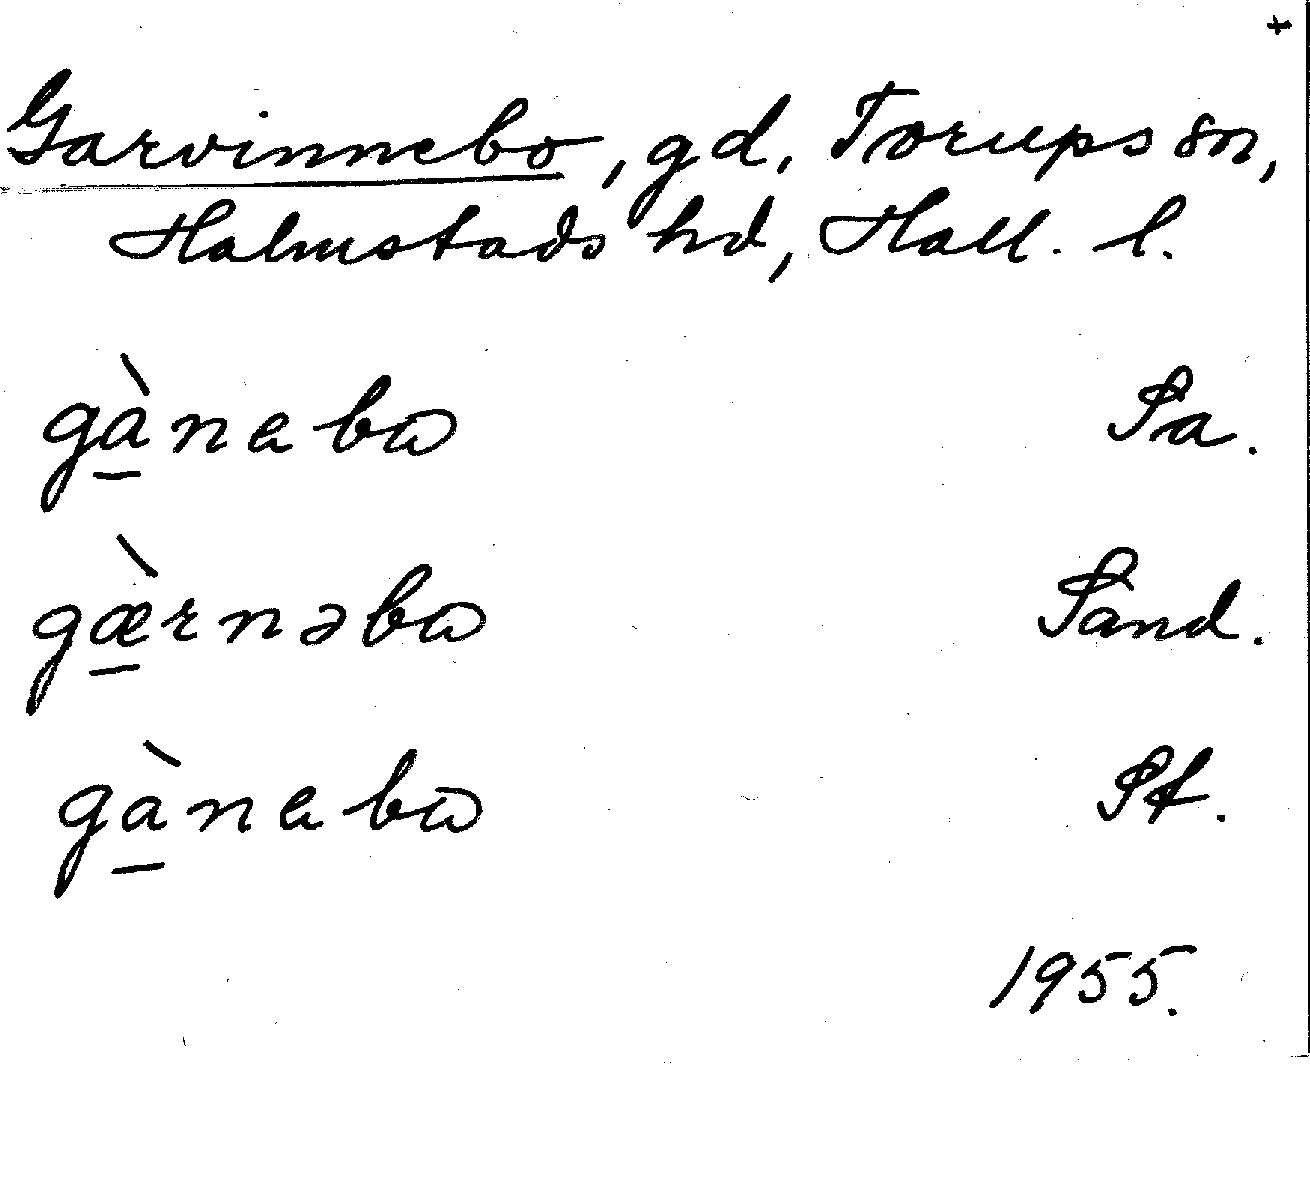 +
Garvinnebo, gd, Torups sn,
Halmstads hd, Hall. l.
gà̱nebω Sa.
gæ̱̀rnəbω Sand.
gà̱nebω St.
1955.